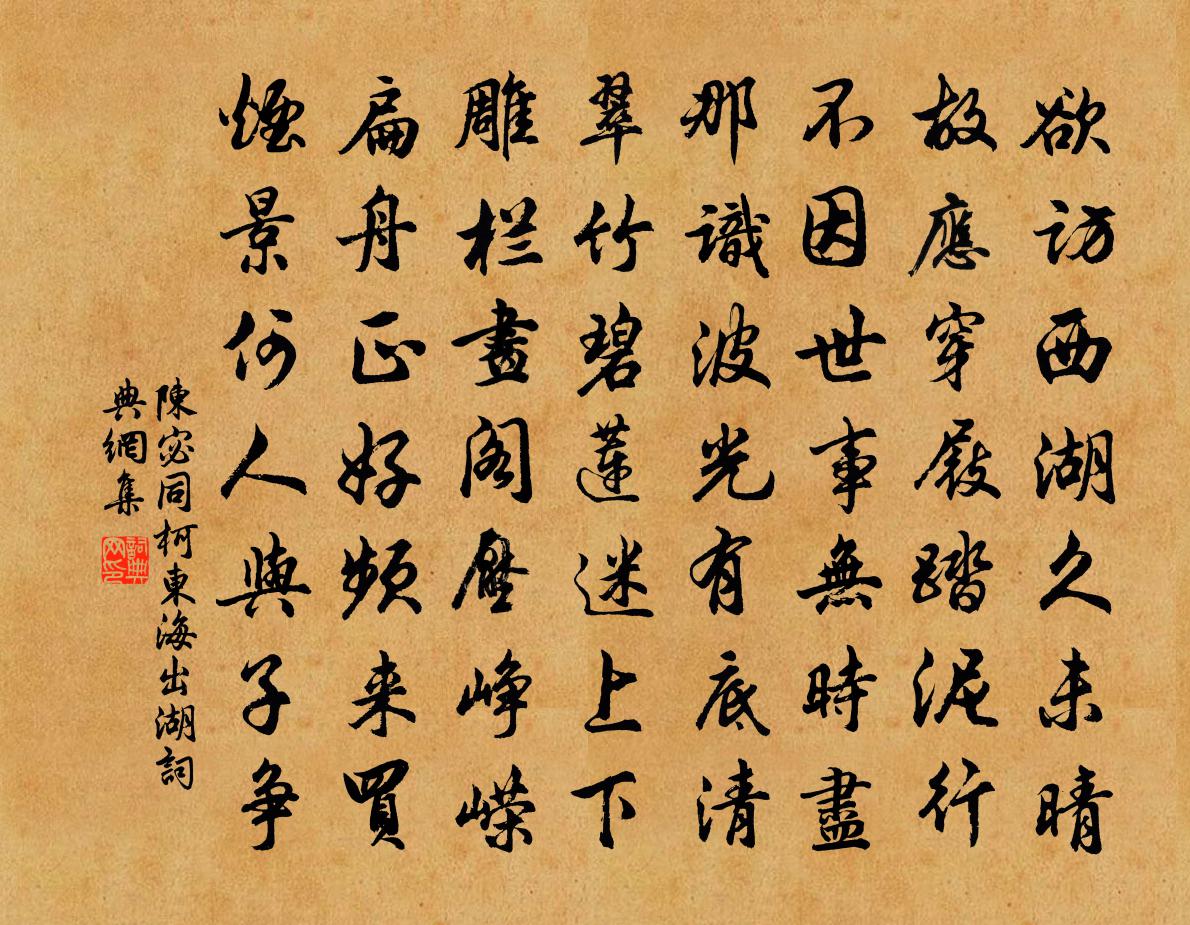 欲訪西湖久未晴
故應穿屐踏泥行
不因世事無時盡
那識波光有底清
翠竹碧蓮迷上下
雕栏畫阁壓峥嵘
扁舟正好頻来買
煙景何人與子争
陳宓同柯東海出湖詞
典網集
詞典网印